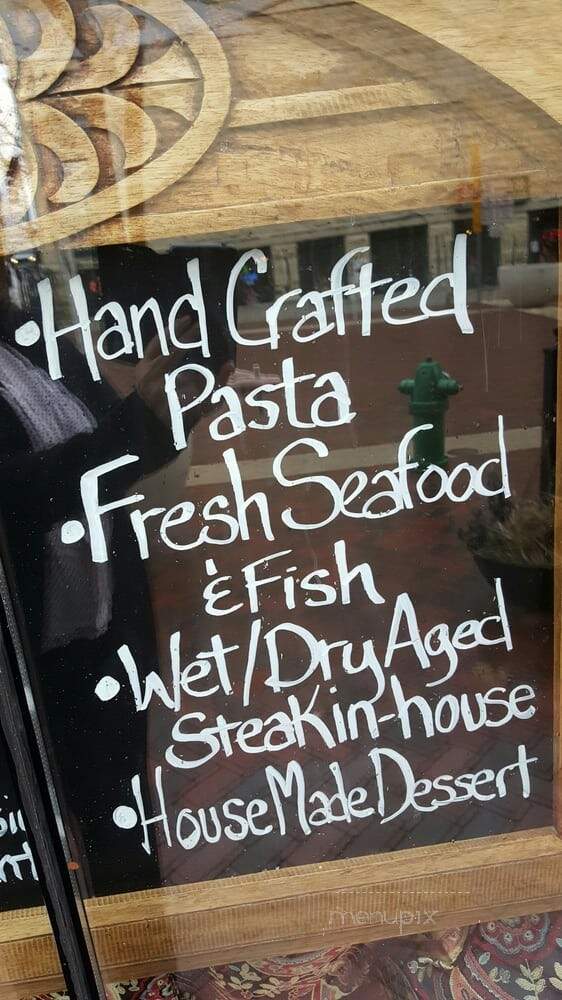 • Hand Crafted
Pasta
• Fresh Seafood
& Fish
• Wet/Dry Aged
Steak in-house
• House Made Dessert
menupix